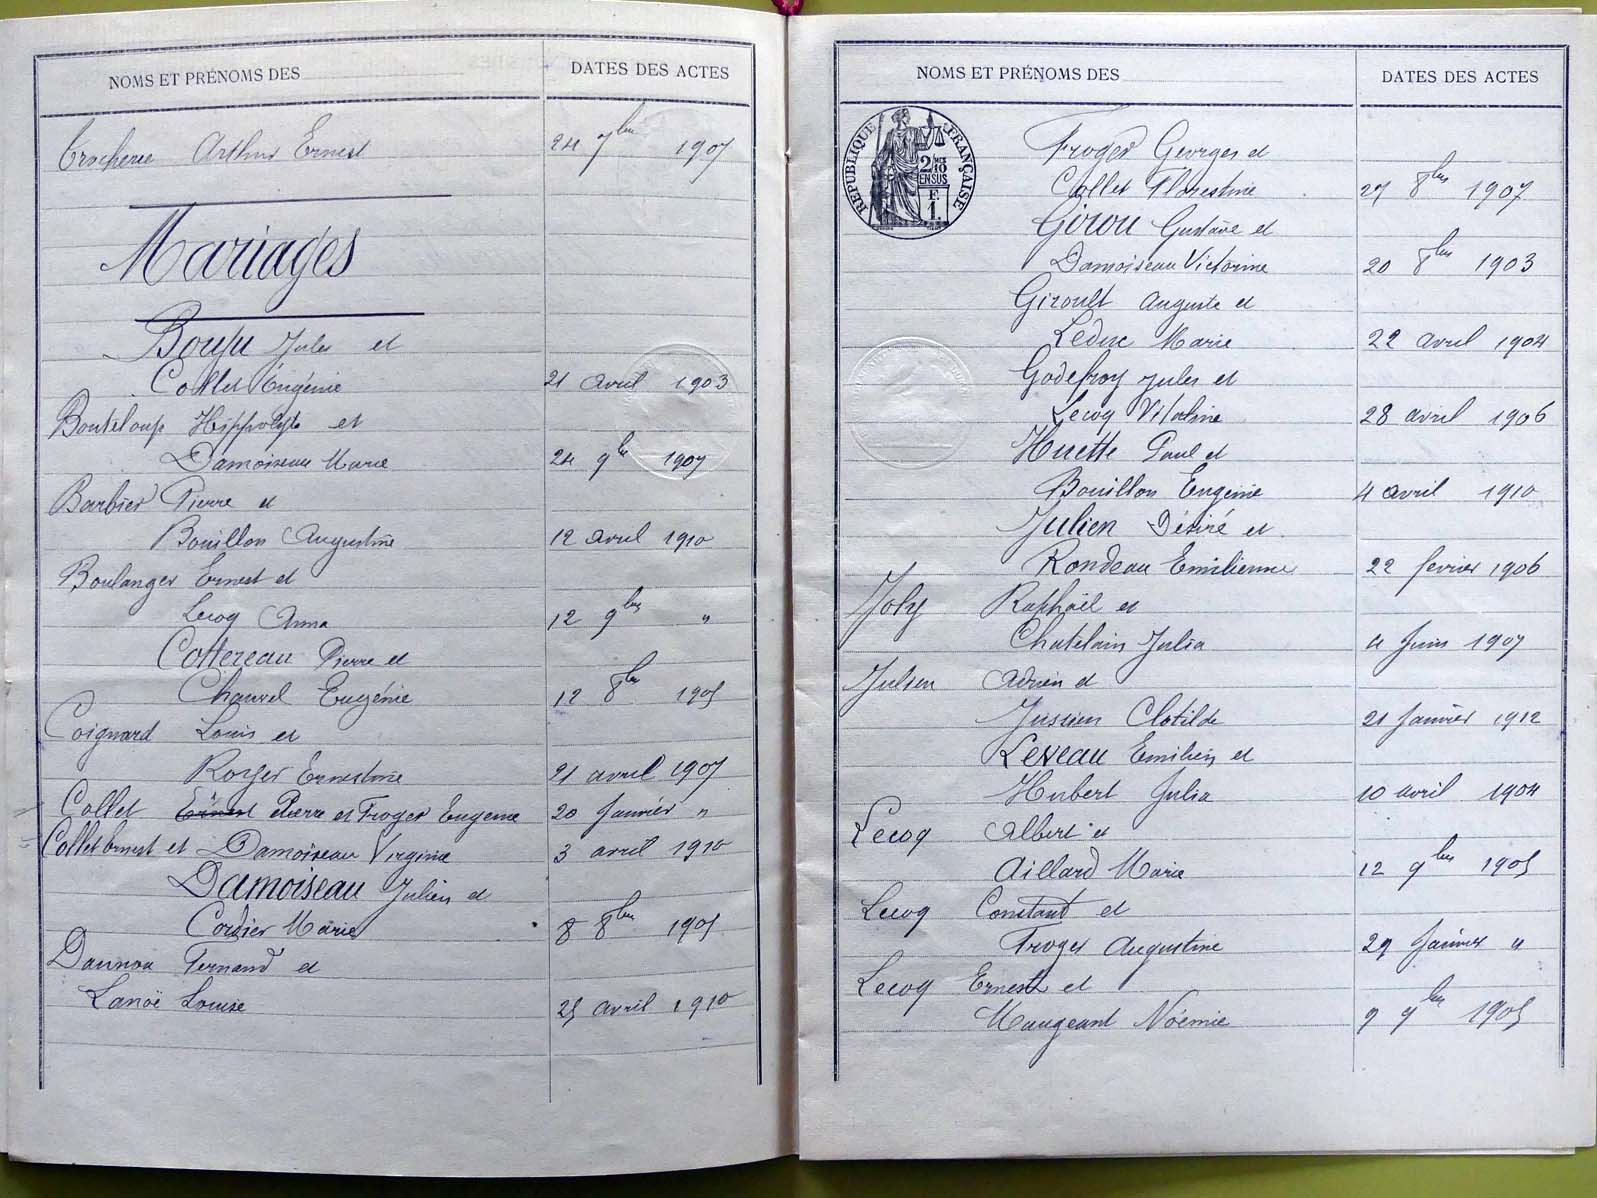 NOMS ET PRÉNOMS DES DATES DES ACTES
Arthur Ernest 24 7bre 1907
Mariages
Boufu Jules et
Collet Eugénie 21 avril 1903
Bouteloup Hippolyte et
Damoiseau Marie 24 9bre 1907
Barbier Pierre et
Bouillon Augustine 12 avril 1910
Boulanger Ernest et
Lecoq Anna 12 9bre "
Cottereau Pierre et
Chauvel Eugénie 12 8bre 1905
Coignard Louis et
Roger Ernestine 21 avril 1907
Collet Ernest Pierre et Froger Eugenie 20 Janvier "
Collet Ernest et Damoiseau Virginie 3 avril 1910
Damoiseau Julien et
Cordier Marie 8 8bre 1905
Daunou Fernand et
Lanoë Louise 25 avril 1910
NOMS ET PRÉNOMS DES DATES DES ACTES
RÉPUBLIQUE FRANÇAISE
2/10
EN SUS
F.
1.
Froger Georges et
Collet Florestine 27 8bre 1907
Girou Gustave et
Damoiseau Victorine 20 8bre 1903
Giroult Auguste et
Leduc Marie 22 avril 1904
Godefroy Jules et
Lecoq Vitaline 28 avril 1906
Huette Paul et
Bouillon Eugénie 4 avril 1910
Julien Désiré et
Rondeau Emilienne 22 fevrier 1906
Joly Raphaël et
Chatelain Julia 4 Juin 1907
Julien Adrien et
Jussieu Clotilde 21 Janvier 1912
Leveau Emilien et
Hubert Julia 10 avril 1904
Lecoq Albert et
Aillard Marie 12 9bre 1905
Lecoq Constant et
Froger Augustine 29 Janvier "
Lecoq Ernest et
Maugeant Noémie 9 9bre 1905